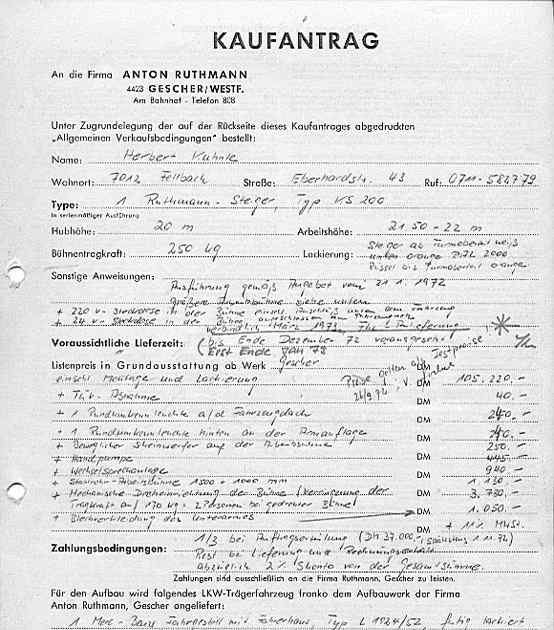 KAUFANTRAG
An die Firma ANTON RUTHMANN
4423 GESCHER/WESTF.
Am Bahnhof - Telefon 808
Unter Zugrundelegung der auf der Rückseite dieses Kaufantrages abgedruckten
„Allgemeinen Verkaufsbedingungen" bestellt:
Name: Herbert Kuhnle
Wohnort: 7012 Fellbach Straße: Eberhardstr. 43 Ruf: 0711-582779
Type: 1 Ruthmann-Steiger, Typ KS 200
In serienmäßiger Ausführung
Hubhöhe: 20 m Arbeitshöhe: 21.50-22 m
Bühnentragkraft: 250 kg Lackierung: Steiger ab Turmoberteil weiß
unten orange RAL 2000
bis Turmoberteil orange
Sonstige Anweisungen: Ausführung gemäß Angebot vom 21.1.1972
Größere Arbeitsbühne siehe unten
+ 220 V-Steckdose in der Bühne
+ 24 V-Steckdose in der Bühne
verbindlich März 1973
Voraussichtliche Lieferzeit: (bis Ende Dezember 72 vorausgesehen)
Erst Ende 73
Listenpreis in Grundausstattung ab Werk Gescher
einschl. Montage und Lackierung DM 105.220.-
+ TÜV-Abnahme DM 40.-
+ 1 Rundumkennleuchte a/d Fahrzeugdach DM
+ 1 Rundumkennleuchte hinten an der Armauflage DM
+ Beweglicher Scheinwerfer auf der Arbeitsbühne DM 250.-
+ Handpumpe DM 445.-
+ Wechselsprechanlage DM 940.-
+ Arbeitsbühne 1500 x 1000 mm DM 1.130.-
+ Mechanische Dreheinrichtung der Bühne (Verringerung der DM 3.780.-
Tragkraft auf 170 kg = 2 Personen bei gedrehter Bühne)
+ Blechverkleidung des Unterarmes DM 1.050.-
DM + 11% MwSt.
Zahlungsbedingungen: 1/3 bei Auftragserteilung (DM 37.000,- spätestens 1.11.72)
Rest bei Lieferung und Rechnungserhalt
abzüglich 2% Skonto von der Gesamtsumme.
Zahlungen sind ausschließlich an die Firma Ruthmann, Gescher zu leisten.
Für den Aufbau wird folgendes LKW-Trägerfahrzeug franko dem Aufbauwerk der Firma
Anton Ruthmann, Gescher angeliefert:
1 Merc-Benz Fahrgestell mit Fahrerhaus, Typ L 1924/52, fertig lackiert